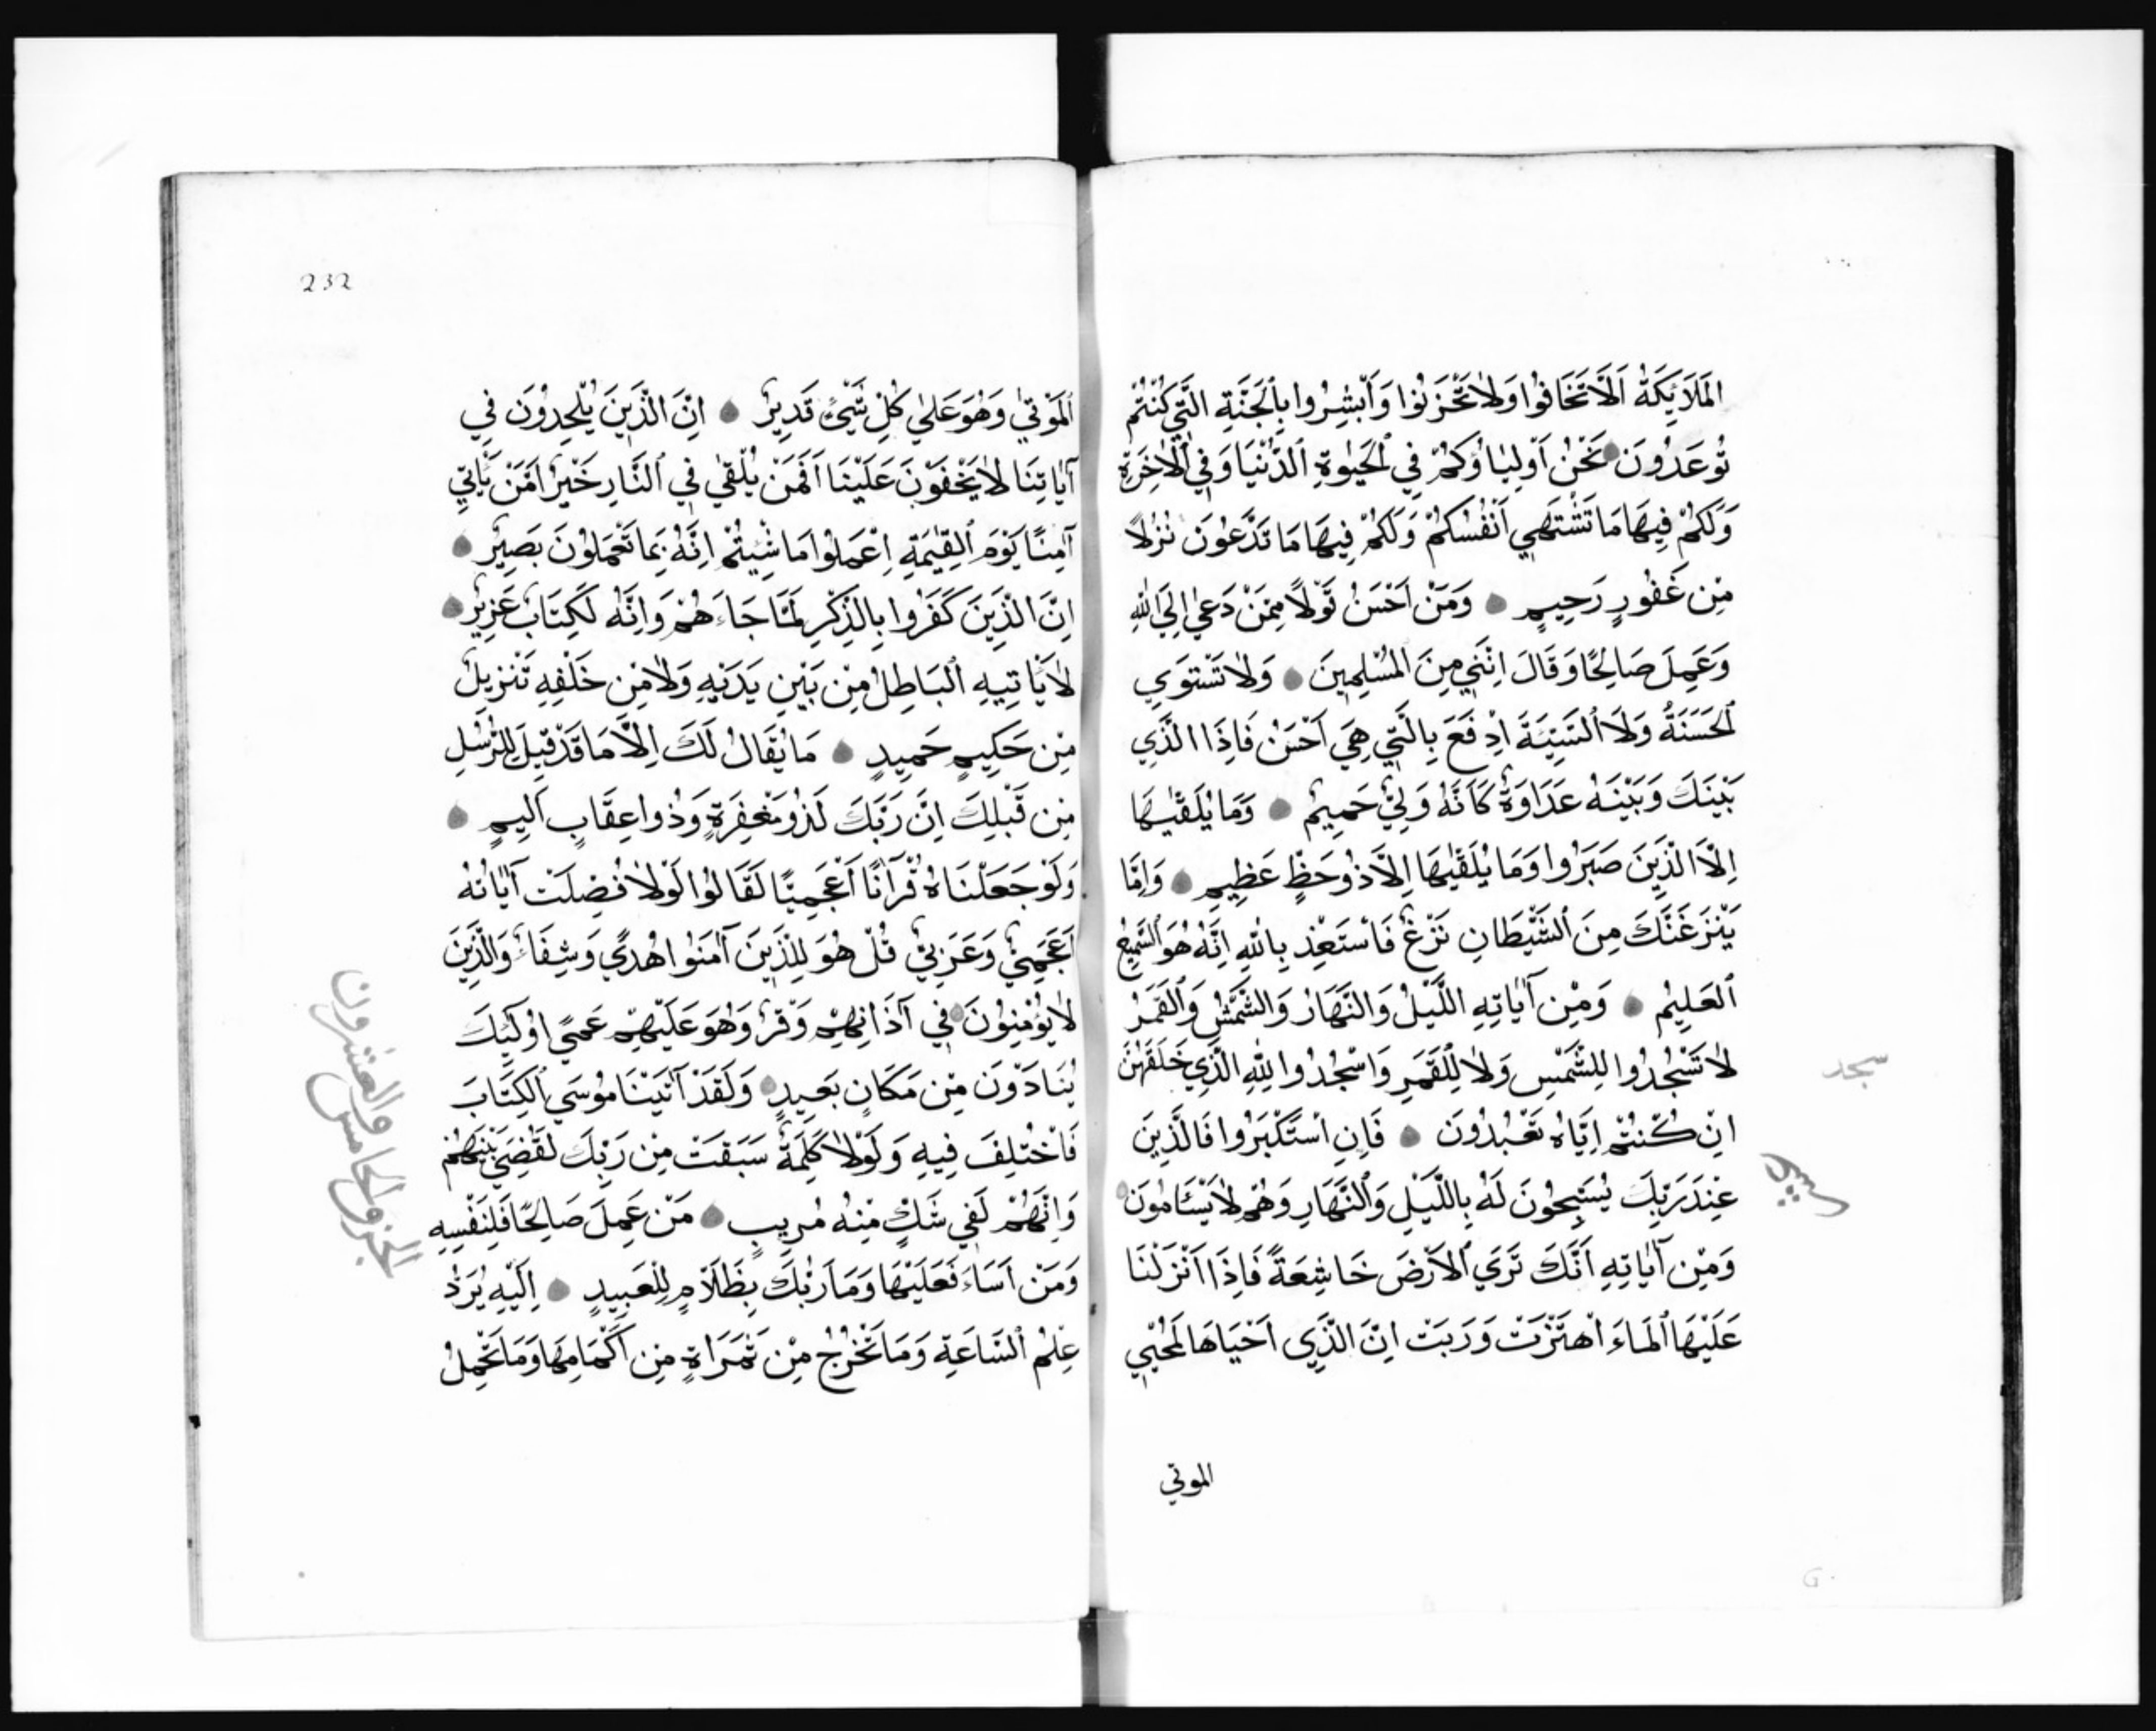 المَلَائِكَةُ اَلَّا تَخَافُوا وَلَا تَحْزَنُوا وَاَبْشِرُوا بِالْجَنَّةِ الَّتِي كُنْتُمْ
تُوعَدُونَ نَحْنُ اَوْلِيَاؤُكُمْ فِي الْحَيٰوةِ الدُّنْيَا وَفِي الْاٰخِرَةِ
وَلَكُمْ فِيهَا مَا تَشْتَهِي اَنْفُسُكُمْ وَلَكُمْ فِيهَا مَا تَدَّعُونَ نُزُلًا
مِنْ غَفُورٍ رَحِيمٍ وَمَنْ اَحْسَنُ قَوْلًا مِمَّنْ دَعٰي اِلَي اللهِ
وَعَمِلَ صَالِحًا وَقَالَ اِنَّنِي مِنَ الْمُسْلِمِينَ وَلَا تَسْتَوِي
الْحَسَنَةُ وَلَا السَّيِّئَةَ اِدْفَعَ بِالَّتِي هِيَ اَحْسَنُ فَاِذَا الَّذِي
بَيْنَكَ وَبَيْنَهُ عَدَاوَةٌ كَاَنَّهُ وَلِيٌّ حَمِيمٌ وَمَا يُلَقّٰيهَا
اِلَّا الَّذِينَ صَبَرُوا وَمَا يُلَقّٰيهَا اِلَّا ذُو حَظٍّ عَظِيمٍ وَاِمَّا
يَنْزَغَنَّكَ مِنَ الشَّيْطَانِ نَزْغٌ فَاسْتَعِذ بِاللهِ اِنَّهُ هُوَ السَّمِيعُ
العَلِيمُ وَمِنْ آيَاتِهِ اللَّيْلُ وَالنَّهَارُ وَالشَّمْسُ وَالْقَمَرُ
لَا تَسْجُدُوا لِلشَّمْسِ وَلَا لِلْقَمَرِ وَاسْجُدُوا لِلّٰهِ الَّذِي خَلَقَهُنَّ
اِنْ كُنْتُمْ اِيَّاهُ تَعْبُدُونَ فَاِنِ اسْتَكْبَرُوا فَالَّذِينَ
عِنْدَ رَبِّكَ يُسَبِّحُونَ لَهُ بِاللَّيْلِ وَالنَّهَارِ وَهُمْ لَا يَسْئَامُونَ
وَمِنْ آيَاتِهِ اَنَّكَ تَرَي الْاَرْضَ خَاشِعَةً فَاِذَا اَنْزَلْنَا
عَلَيْهَا الْمَاءَ اهْتَزَّتْ وَرَبَتْ اِنَّ الَّذِي اَحْيَاهَا لَمُحْيِي
الموتي
سجد
232
الْمَوْتٰي وَهُوَ عَلٰي كُلِّ شَيْئٍ قَدِيرٌ اِنَّ الَّذِينَ يُلْحِدُونَ فِي
آيَاتِنَا لَا يَخْفَوْنَ عَلَيْنَا اَفَمَنْ يُلْقٰي فِي النَّارِ خَيْرٌ اَمَّنْ يَأتِي
آمِنًا يَوْمَ الْقِيٰمَةِ اِعْمَلُوا مَا شِئْتُمْ اِنَّهُ بِمَا تَعْمَلُونَ بَصِيرٌ
اِنَّ الَّذِينَ كَفَرُوا بِالذِّكْرِ لَمَّا جَاءَهُمْ وَاِنَّهُ لَكِتَابٌ عَزِيزٌ
لَا يَأْتِيهِ الْبَاطِلُ مِنْ بَيْنِ يَدَيْهِ وَلَا مِنْ خَلْفِهِ تَنْزِيلٌ
مِنْ حَكِيمٍ حَمِيدٍ مَا يُقَالُ لَكَ اِلَّا مَا قَدْ قِيلَ لِلرُّسُلِ
مِنْ قَبْلِكَ اِنَّ رَبَّكَ لَذُو مَغْفِرَةٍ وَذُوا عِقَابٍ اَلِيمٍ
وَلَوْ جَعَلْنَاهُ قُرْآنًا اَعْجَمِيًّا لَقَالُوا لَوْلَا فُصِّلَتْ آيَاتُهُ
اَعْجَمِيٌّ وَعَرَبِيٌّ قُلْ هُوَ لِلَّذِينَ آمَنُوا هُدًي وَشِفَاءٌ وَالَّذِينَ
لَا يُؤْمِنُونَ فِي آذَانِهِمْ وَقْرٌ وَهُوَ عَلَيْهِمْ عَمًي اُولَئِكَ
يُنَادَوْنَ مِنْ مَكَانٍ بَعِيدٍ وَلَقَدْ آتَيْنَا مُوسَي الْكِتَابَ
فَاخْتُلِفَ فِيهِ وَلَوْلَا كَلِمَةٌ سَبَقَتْ مِنْ رَبِّكَ لَقُضِيَ بَيْنَهُمْ
وَاِنَّهُمْ لَفِي شَكٍّ مِنْهُ مُرِيبٍ مَنْ عَمِلَ صَالِحًا فَلِنَفْسِهِ
وَمَنْ اَسَاءَ فَعَلَيْهَا وَمَا رَبُّكَ بِظَلَّامٍ لِلْعَبِيدِ اِلَيْهِ يُرَدُّ
عِلْمُ السَّاعَةِ وَمَا تَخْرُجُ مِنْ ثَمَرَاةٍ مِنْ اَكْمَامِهَا وَمَا تَحْمِلُ
الجزو الخامس والعشرون